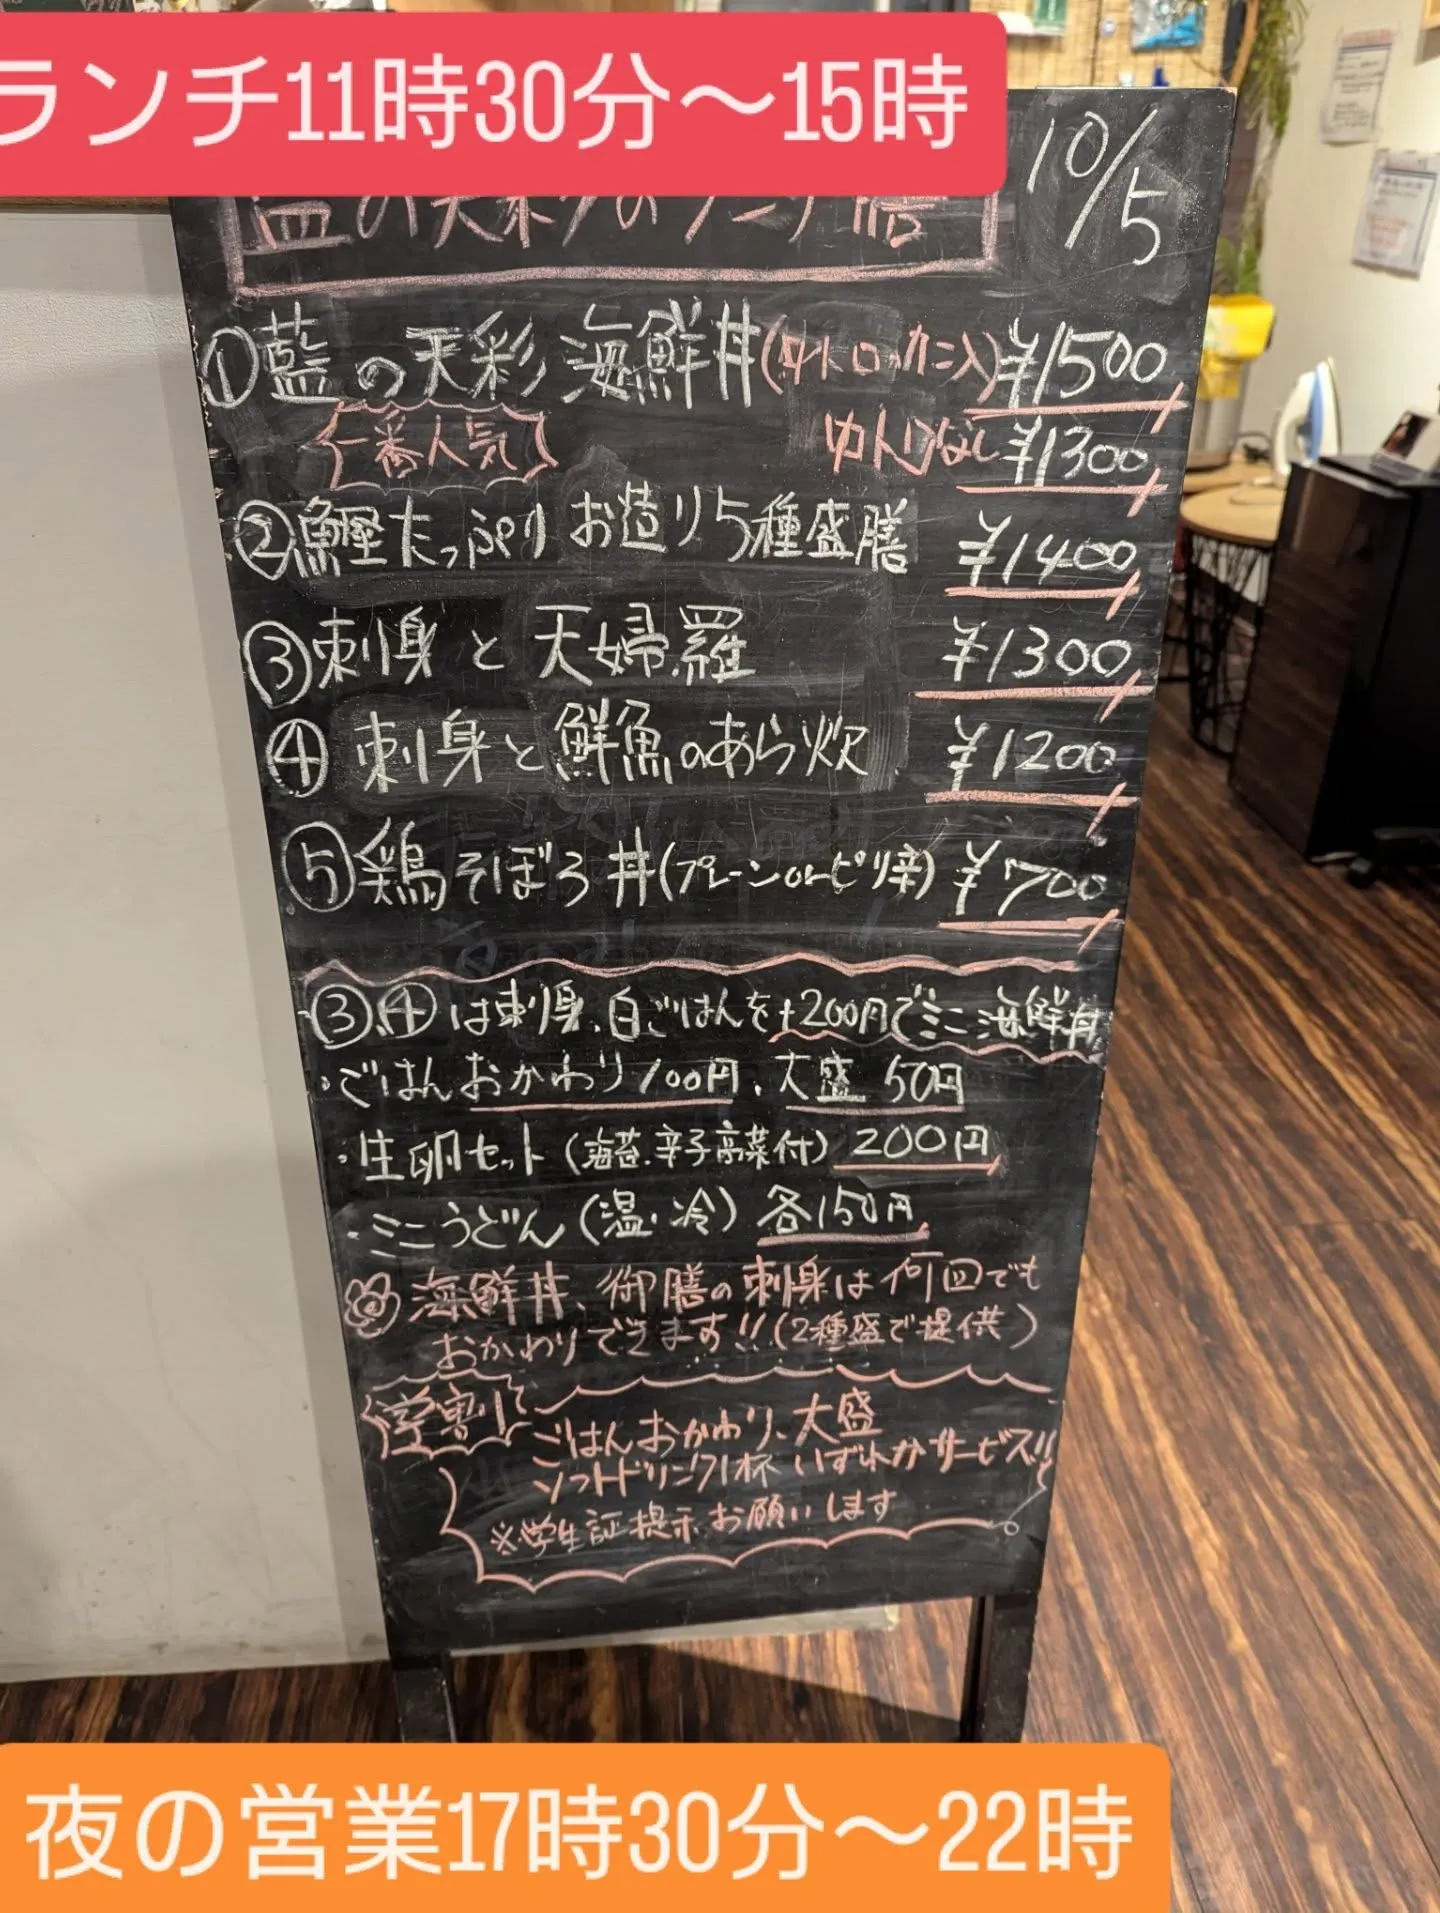 ランチ11時30分〜15時
10/5
藍の天彩のランチ膳
①藍の天彩 海鮮丼(中トロ・カニ入)¥1500
一番人気
中トロなし ¥1300
②鰹たっぷり お造り5種盛膳 ¥1400
③刺身と天婦羅 ¥1300
④刺身と鮮魚のあら炊 ¥1200
⑤鶏そぼろ丼(プレーンorピリ辛) ¥700
③、④は刺身、白ごはんを+200円でミニ海鮮丼
・ごはんおかわり100円、大盛50円
・生卵セット(海苔、辛子高菜付)200円
・ミニうどん(温・冷)各150円
海鮮丼、御膳の刺身は何回でも
おかわりできます!!(2種盛で提供)
学割
ごはんおかわり、大盛
ソフトドリンク1杯 いずれかサービス!!
※学生証提示お願いします
夜の営業17時30分〜22時